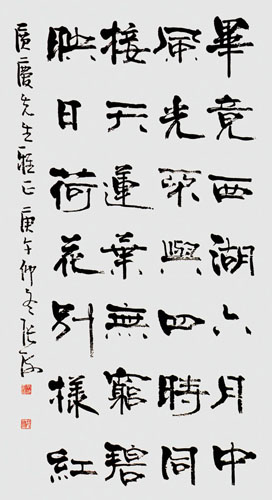 畢竟西湖六月中
風光不與四時同
接天蓮葉無窮碧
映日荷花別樣紅
慶先生雅正庚午仲冬张海